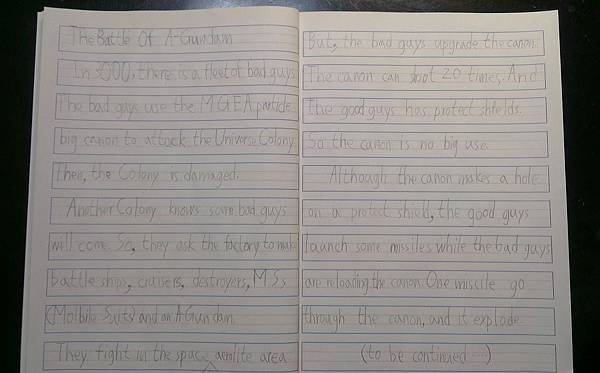 The Battle Of A-Gundam
In 3000, there is a fleet of bad guys
The bad guys use the MGEA particle
big canon to attack the Universe Colony.
Then, the Colony is damaged.
Another Colony knows some bad guys
will come. So, they ask the factory to make
battle ships, cruisers, destroyers, M.S.s
(Molbile Suits) and an A-Gundam.
They fight in the space aerolite area
But, the bad guys upgrade the canon.
The canon can shoot 20 times. And
the good guys has protect shields.
So the canon is no big use.
Although the canon makes a hole
on a protect shield, the good guys
launch some missiles while the bad guys
are reloading the canon. One miscile go
through the canon, and it explode.
(to be continued ...)